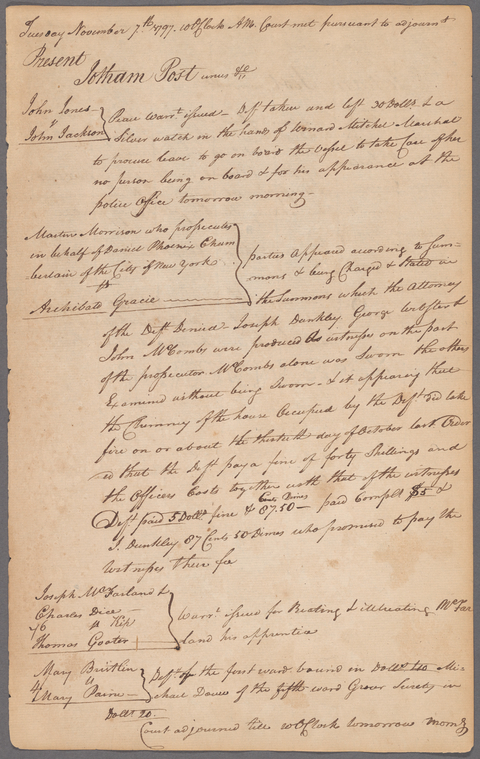 Tuesday November 7th 1797. 10 OClock AM. Court met pursuant to adjournt
Present
Jotham Post unus &c
John Jones
vs
John Jackson
Peace Warrt issued Deft taken and left 30 Dolls & a
Silver watch in the hands of Mitchel Marshal
to procure leave to go on board the Vessel to take Care of her
no person being on board & for his appearance at the
police Office tomorrow morning —
Martin Morrison who prosecutes
in behalf of Daniel Phoenix Cham
berlain of the City of New York
vs
Archibald Gracie
parties Appeared according to Sum-
mons & being Charged as Stated in
the Summons which the Attorney
of the Deft Denied Joseph Dunkley George Webster &
John McCombs were produced as witnesses on the part
of the prosecutor McCombs alone was Sworn the others
Examined without being Sworn - & it appearing that
the Chimney of the house Occupied by the Deft did take
fire on or about the thirtieth day of October last Order
ed that the Deft pay a fine of forty Shillings and
the Officers Costs together with that of the witnesses
Deft paid 5 Dolls fine & 87.50 — paid Complt $5 &
Cents Dimes
J. Dunkley 87 Cents 50 Dimes who promised to pay the
Witnesses there fee
Joseph McFarland &
Charles Dice —
vs
Thomas
Warrt issued for Beating & illtreating McFar
land his apprentice
Mary
vs
Mary Paine —
Deft of the first ward bound in Dolls 40 Mi-
chael of the fifth ward Grocer Surety in
Dolls 20.—
Court adjourned till 10 OClock tomorrow morng